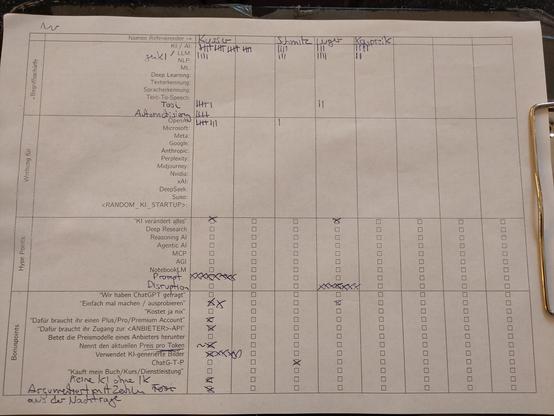 Namen Referierender → Kysser Schmitz Unger Kaporzik
Begrifflichkeiten
KI / AI:
genKI / LLM:
NLP:
ML:
Deep Learning:
Texterkennung:
Spracherkennung:
Text-To-Speech:
Tool
Automatisierung
Werbung für
OpenAI:
Microsoft:
Meta:
Google:
Anthropic:
Perplexity:
Midjourney:
Nvidia:
xAI:
DeepSeek:
Suno:
<RANDOM_KI_STARTUP>:
Hype Points
"KI verändert alles"
Deep Research
Reasoning AI
Agentic AI
MCP
AGI
NotebookLM
Prompt
Disruption
Bonuspoints
"Wir haben ChatGPT gefragt"
"Einfach mal machen / ausprobieren"
"Kostet ja nix"
"Dafür braucht ihr einen Plus/Pro/Premium Account"
"Dafür braucht ihr Zugang zur <ANBIETER>-API"
Betet die Preismodelle eines Anbieters herunter
Nennt den aktuellen Preis pro Token
Verwendet KI-generierte Bilder
ChatG-T-P
"Kauft mein Buch/Kurs/Dienstleistung"
Keine KI ohne IK
Argumentiert mit Zahlen
aus der Nachfrage